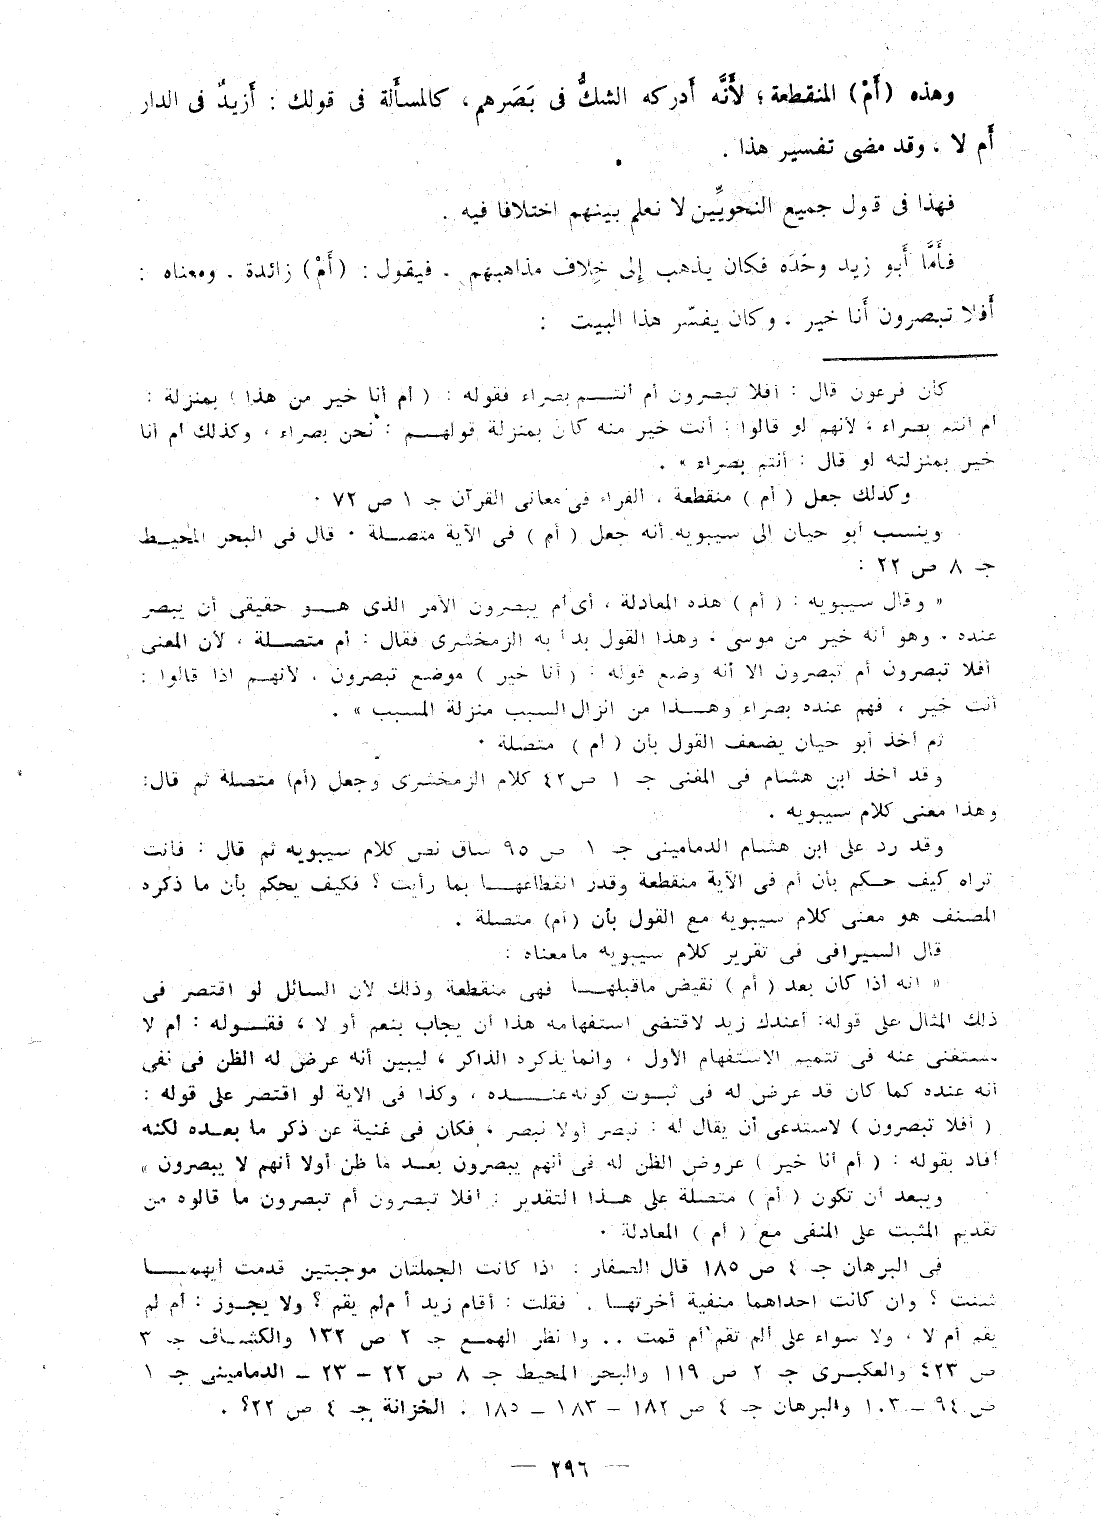 وهذه (أَمْ) المنقطعة؛ لأَنَّه أَدركه الشكُّ فى بَصَرهم، كالمسأَلة فى قولك : أَزيدٌ فى الدار
أَم لا ، وقد مضى تفسير هذا .
فهذا فى قول جميع النحويِّين لا نعلم بينهم اختلافا فيه .
فأَمَّا أَبو زيد وحْدَه فكان يذهب إلى خِلاف مذاهبهم . فيقول : (أَمْ) زائدة . ومعناه :
أَفلا تبصرون أَنا خير . وكان يفسّر هذا البيت :
كأن فرعون قال : أفلا تبصرون أم أنتـــم بصراء فقوله : ( أم أنا خير من هذا ) بمنزلة :
أم أنتم بصراء ، لأنهم لو قالوا : أنت خير منه كان بمنزلة قولهـــم : نحن بصراء ، وكذلك أم أنا
خير بمنزلته لو قال : أنتم بصراء » .
وكذلك جعل ( أم ) منقطعة ، الفراء فى معانى القرآن جـ ١ ص ٧٢ ٠
وينسب أبو حيان الى سيبويه أنه جعل ( أم ) فى الآية متصــلة ٠ قال فى البحر المحيــط
جـ ٨ ص ٢٢ :
« وقال سيبويه : ( أم ) هذه المعادلة ، أى أم يبصرون الأمر الذى هــو حقيقى أن يبصر
عنده ٠ وهو أنه خير من موسى ٠ وهذا القول بدأ به الزمخشرى فقال : أم متصــلة ، لأن المعنى
أفلا تبصرون أم تبصرون الا أنه وضع قوله : ( أنا خير ) موضع تبصرون ، لأنهــم اذا قالوا :
أنت خير ، فهم عنده بصراء وهــذا من انزال السبب منزلة المسبب » .
ثم أخذ أبو حيان يضعف القول بأن ( أم ) متصلة ٠
وقد أخذ ابن هشام فى المغنى جـ ١ ص ٤٢ كلام الزمخشرى وجعل (أم) متصلة ثم قال:
وهذا معنى كلام سيبويه .
وقد رد على ابن هشام الدمامينى جـ ١ ص ٩٥ ساق نص كلام سيبويه ثم قال : فأنت
تراه كيف حــكم بأن أم فى الآية منقطعة وقدر انقطاعهــا بما رأيت ؟ فكيف يحكم بأن ما ذكره
المصنف هو معنى كلام سيبويه مع القول بأن (أم) متصلة .
قال السيرافى فى تقرير كلام سيبويه مامعناه :
« انه اذا كان بعد ( أم ) نقيض ماقبلهــا فهى منقطعة وذلك لأن السائل لو اقتصر فى
ذلك المثال على قوله: أعندك زيد لاقتضى استفهامه هذا أن يجاب بنعم أو لا ، فقــوله : أم لا
مستغنى عنه فى تتميم الاستفهام الأول ، وانما يذكره الذاكر ، ليبين أنه عرض له الظن فى نفى
أنه عنده كما كان قد عرض له فى ثبــوت كونه عنــــده ، وكذا فى الآية لو اقتصر على قوله :
( أفلا تبصرون ) لاستدعى أن يقال له : نبصر أولا نبصر ، فكان فى غنية عن ذكر ما بعــده لكنه
أفاد بقوله : ( أم أنا خير ) عروض الظن له فى أنهم يبصرون بعــد ما ظن أولا أنهم لا يبصرون »
ويبعد أن تكون ( أم ) متصلة على هــذا التقدير : أفلا تبصرون أم تبصرون ما قالوه من
تقديم المثبت على المنفى مع ( أم ) المعادلة ٠
فى البرهان جـ ٤ ص ١٨٥ قال الصفار : اذا كانت الجملتان موجبتين قدمت أيهمــــا
شئت ؟ وان كانت احداهما منفية أخرتهــا . فقلت : أقام زيد أم لم يقم ؟ ولا يجوز : أم لم
يقم أم لا ، ولا سواء على ألم تقم أم قمت .. وانظر الهمع جـ ٢ ص ١٣٢ والكشــاف جـ ٣
ص ٤٢٣ والعكبــرى جـ ٢ ص ١١٩ والبحر المحيط جـ ٨ ص ٢٢ – ٢٣ – الدمامينى جـ ١
ص ٩٤ – ١٠٣ والبرهان جـ ٤ ص ١٨٢ – ١٨٣ – ١٨٥ . الخزانة جـ ٤ ص ٢٢؟ .
— ٢٩٦ —